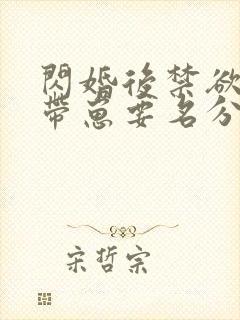 閃婚後禁欲
帶崽要名分
宋哲宗